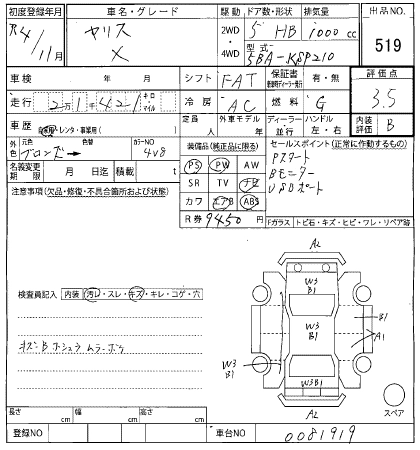 初度登録年月 車名・グレード 駆動 ドア数・形状 排気量 出品NO.
R4/11月 ヤリス 2WD 5 HB 1000cc 519
X 4WD 型式 5BA-KSP210
車検 年 月 シフト FAT 保証書 有・無 評価点
走行 2万1千421 キロ マイル 冷房 AC 燃料 G 3.5
車歴 自家用・レンタ・事業用( ) 定員 人 外車モデル 年 ディーラー 並行 ハンドル 左・右 内装評価 B
外色 元色 ブロンズ→ 色替 カラーNO 4V8 装備品(純正品に限る) セールスポイント(正常に作動するもの)
名義変更期限 月 日迄 積載 t PS PW AW Pスタート
SR TV ナビ Bモニター
注意事項(欠品・修復・不具合箇所および状態) カワ エアB ABS USBポート
R券 9450円 Fガラス トビ石・キズ・ヒビ・ワレ・リペア跡
A2
W3
B1
検査員記入 内装 汚れ・スレ・キズ・キレ・コゲ・穴
W3
B1
B1
A1
キズB ホシュウ ムラ・ボウ
W3
B1
W3B1
A2
スペア
長さ cm 幅 cm 高さ cm
登録NO 車台NO 0081919